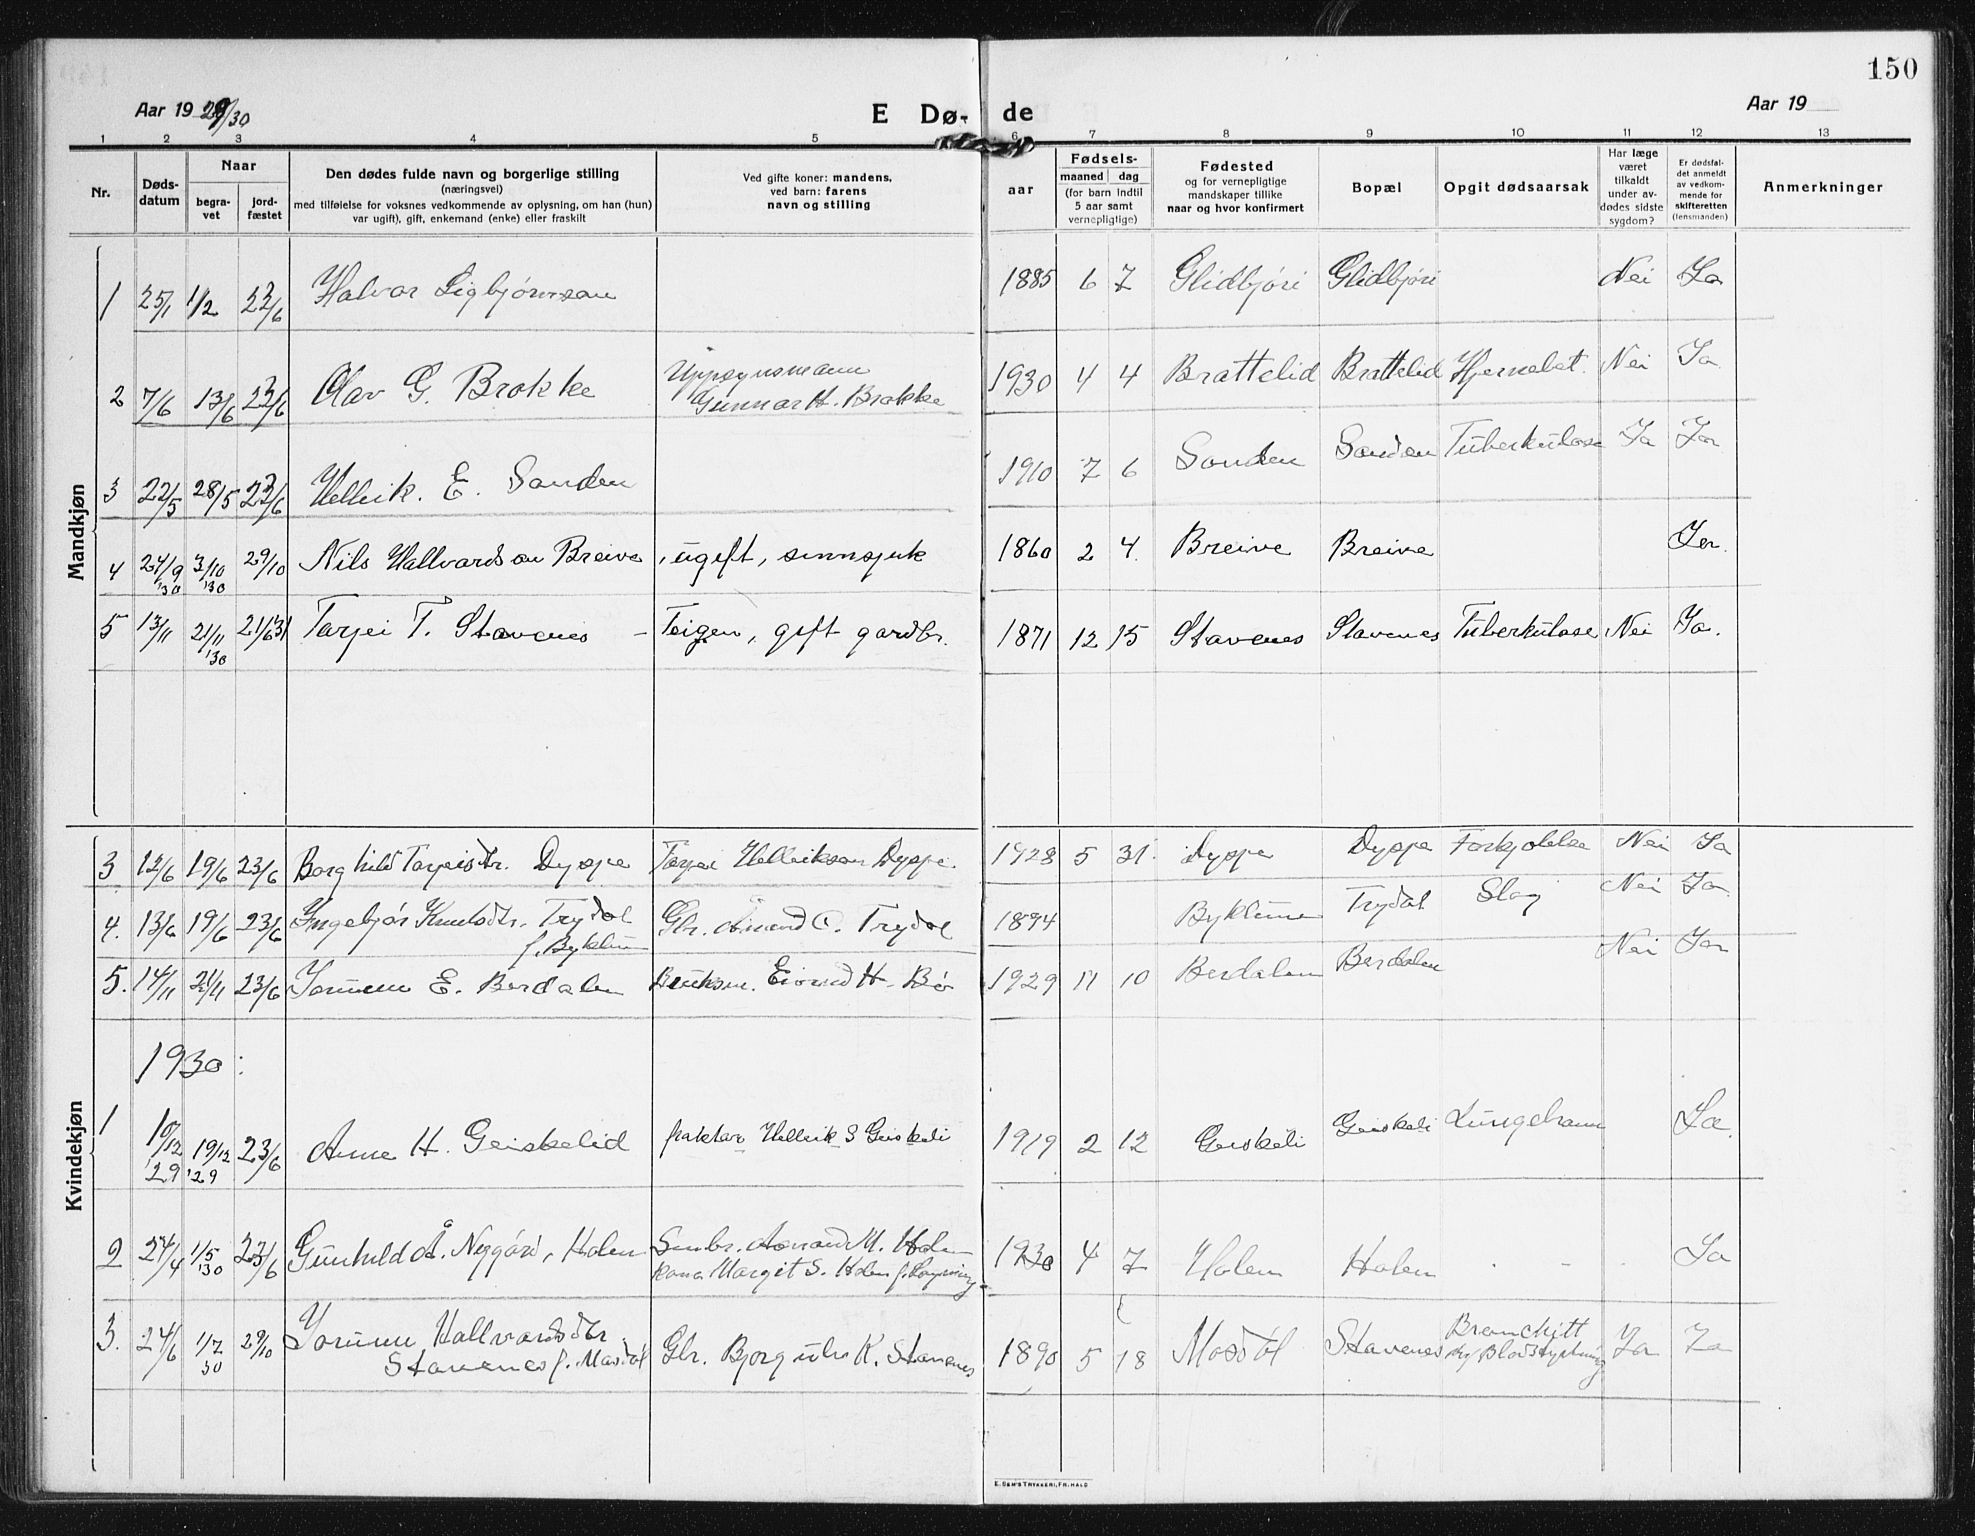 150
Aar 19 29/30
E Dø- de
Aar 19
1 2 3 4 5 6 7 8 9 10 11 12 13
Nr.
Døds-
datum
Naar
begra-
vet
jord-
fæstet
Den dødes fulde navn og borgerlige stilling
(næringsvei)
med tilføielse for voksnes vedkommende av oplysning, om han (hun)
var ugift), gift, enkemand (enke) eller fraskilt
Ved gifte koner: mandens,
ved barn: farens
navn og stilling
aar
Fødsels-
maaned dag
(for barn indtil
5 aar samt
vernepligtige)
Fødested
og for vernepligtige
mandskaper tillike
naar og hvor konfirmert
Bopæl
Opgit dødsaarsak
Har læge
været
tilkaldt
under av-
dødes sidste
sygdom?
Er dødsfal-
det anmeldt
av vedkom-
mende for
skifteretten
(lensmanden)
Anmerkninger
Mandkjøn
1 25/1 1/2 22/6 Halvor Sigbjørnson 1885 6 7 Glidbjøri Glidbjøri Nei Ja
2 7/6 13/6 22/6 Olav G. Brokke Uppsynsmann
Gunnar H. Brokke 1930 4 4 Brattelid Brattelid Hjernebet. Nei Ja
3 22/5 28/5 22/6 Helleik. E. Sanden 1910 7 6 Sanden Sanden Tuberkulose Ja Ja
4 24/9 '30 3/10 '30 29/10 Nils Hallvardson Breive, ugift, sinnsjuk 1860 2 4. Breive Breive Ja.
5 13/11 21/11 '30 21/6 31 Tarjei T. Stavenes – Teigen, gift gardbr. 1871 12 15 Stavenes Stavenes Tuberkulose Nei Ja.
Kvindekjøn
3 12/6 19/6 23/6 Borghild Tarjeisdtr. Dyspe Tarjei Helleikson Dyspe. 1928 5 31. Dyspe Dyspe Forkjølelse Nei Ja
4. 13/6 19/6 23/6 Ingebjør Knutsdtr. Trydal
f. Byklum Gbr. Åmund O. Trydal 1894 Byklum Trydal Slag Nei Ja
5. 14/11 21/11 23/6 Jorunn E. Berdalen Bruksm. Eivind H. Bø 1929 11 10 Berdalen Berdalen Nei Ja
1930:
1 10/12 '29 19/12 '29 23/6 Anne H. Geiskelid Helleik S Geiskeli 1919 2 12 Geiskeli Geiskeli Ja.
2 24/4 1/5 '30 23/6 Gunhild Å. Nygård, Holen Åsmund M. Holen
Kona Margit S. Holen 1930 4 7 Holen Holen . - . Ja
3. 24/6 1/7 30 29/10 Jorunn Hallvardsdtr.
Stavenes f. Mosdøl Gbr. Bjorgulv K. Stavenes 1890 5 18 Mosdøl Stavenes Bronchitt
og Blodstyrtning Ja Ja
E. SEM'S TRYKKERI, FR.HALD